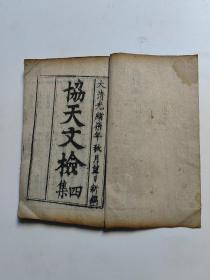 大清光緒柒年秋月望日新鐫
協天文檢四集